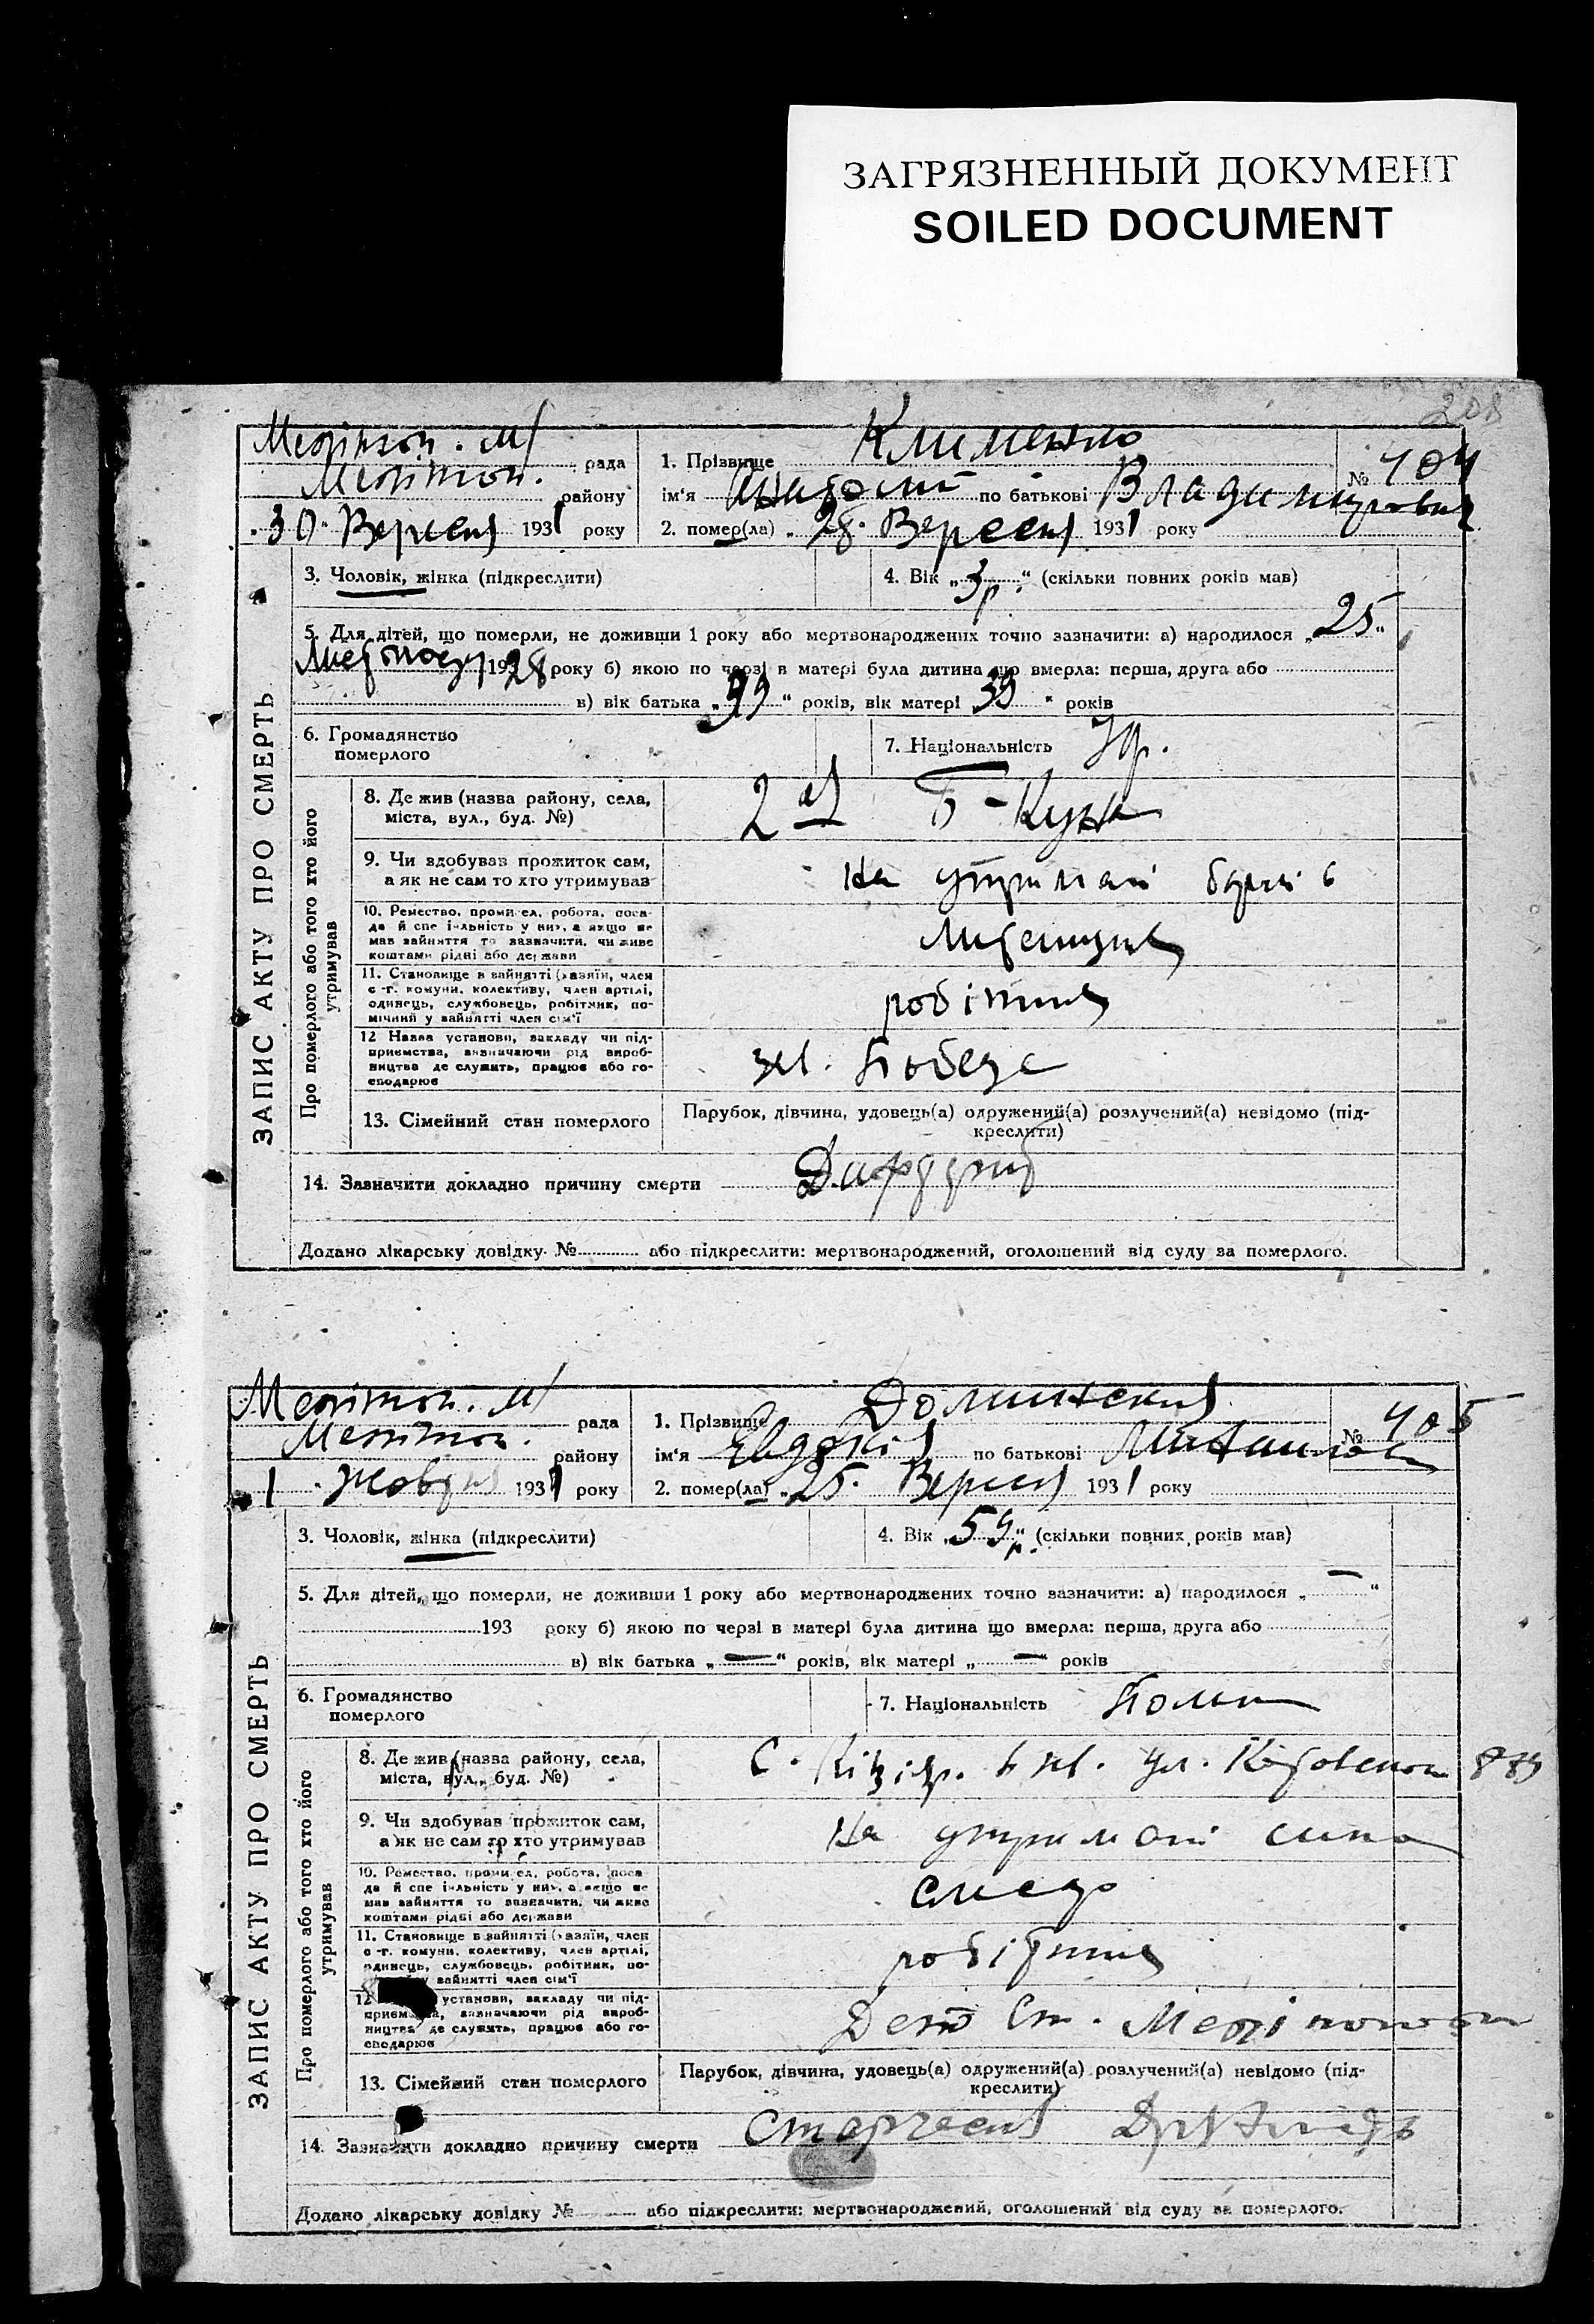 ЗАГРЯЗНЕННЫЙ ДОКУМЕНТ
SOILED DOCUMENT
208
ЗАПИС АКТУ ПРО СМЕРТЬ
Меліпол. М/ рада
Меліпол. району
30 Вересня 1931 року
1. Прізвище Клименко
№ 404
ім'я Анатолій по батькові Владимирович
2. помер(ла) „28. Вересня 1931 року
3. Чоловік, жінка (підкреслити)
4. Вік „3 р.“ (скільки повних років мав)
5. Для дітей, що померли, не доживши 1 року або мертвонароджених точно зазначити: а) народилося „25“
1928 року б) якою по черзі в матері була дитина що вмерла: перша, друга або
в) вік батька „39“ років, вік матері 39 “ років
6. Громадянство
померлого
7. Національність Укр.
Про померлого або того хто його
утримував
8. Де жив (назва району, села,
міста, вул., буд. №)
2 ая
9. Чи здобував прожиток сам,
а як не сам то хто утримував
На утримані батьків
10. Ремество, промисел, робота, поса-
да й спеціальність у них, а якщо не
мав зайняття то зазначити, чи живе
коштами рідні або держави
11. Становище в зайнятті (хазяїн, член
с.-г. комуни, колективу, член артілі,
одинець, службовець, робітник, по-
мічний у зайнятті член сім'ї
робітник
12 Назва установи, закладу чи під-
приємства, визначаючи рід вироб-
ництва де служить, працює або го-
сподарює
зав. Победа
13. Сімейний стан померлого
Парубок, дівчина, удовець(а) одружений(а) розлучений(а) невідомо (під-
креслити)
14. Зазначити докладно причину смерти
Додано лікарську довідку № або підкреслити: мертвонароджений, оголошений від суду за померлого.
ЗАПИС АКТУ ПРО СМЕРТЬ
Меліпол. М/ рада
Меліпол. району
1 жовтня 1931 року
1. Прізвище Долинская
№ 405
ім'я Евдокія по батькові Михайлов
2. помер(ла) „25. Вересня 1931 року
3. Чоловік, жінка (підкреслити)
4. Вік „59 р.“ (скільки повних років мав)
5. Для дітей, що померли, не доживши 1 року або мертвонароджених точно зазначити: а) народилося „—“
193 року б) якою по черзі в матері була дитина що вмерла: перша, друга або
в) вік батька „—“ років, вік матері „—“ років
6. Громадянство
померлого
7. Національність Полька
Про померлого або того хто його
утримував
8. Де жив (назва району, села,
міста, вул., буд. №)
С. Кізіяр. ул.
9. Чи здобував прожиток сам,
а як не сам то хто утримував
На утримані сина
10. Ремество, промисел, робота, поса-
да й спеціальність у них, а якщо не
мав зайняття то зазначити, чи живе
коштами рідні або держави
слесар
11. Становище в зайнятті (хазяїн, член
с.-г. комуни, колективу, член артілі,
одинець, службовець, робітник, по-
у зайнятті член сім'ї
робітник
12 установи, закладу чи під-
приємства, визначаючи рід вироб-
ництва де служить, працює або го-
сподарює
Депо Ст. Мелітополь
13. Сімейний стан померлого
Парубок, дівчина, удовець(а) одружений(а) розлучений(а) невідомо (під-
креслити)
14. Зазначити докладно причину смерти Старческая Дряхлість
Додано лікарську довідку № або підкреслити: мертвонароджений, оголошений від суду за померлого.